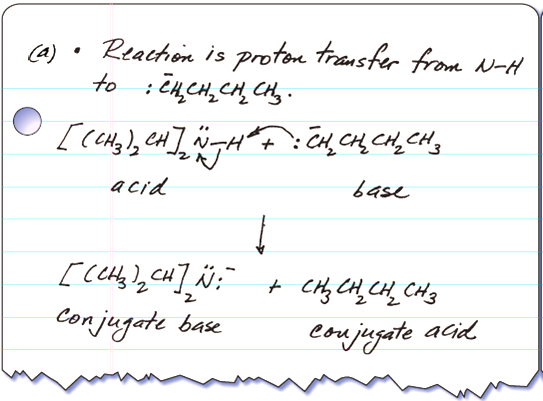 (a) • Reaction is proton transfer from N–H
to :C̄H₂CH₂CH₂CH₃.
[(CH₃)₂CH]₂N̈–H + :C̄H₂CH₂CH₂CH₃
acid base
↓
[(CH₃)₂CH]₂N̈:⁻ + CH₃CH₂CH₂CH₃
conjugate base conjugate acid